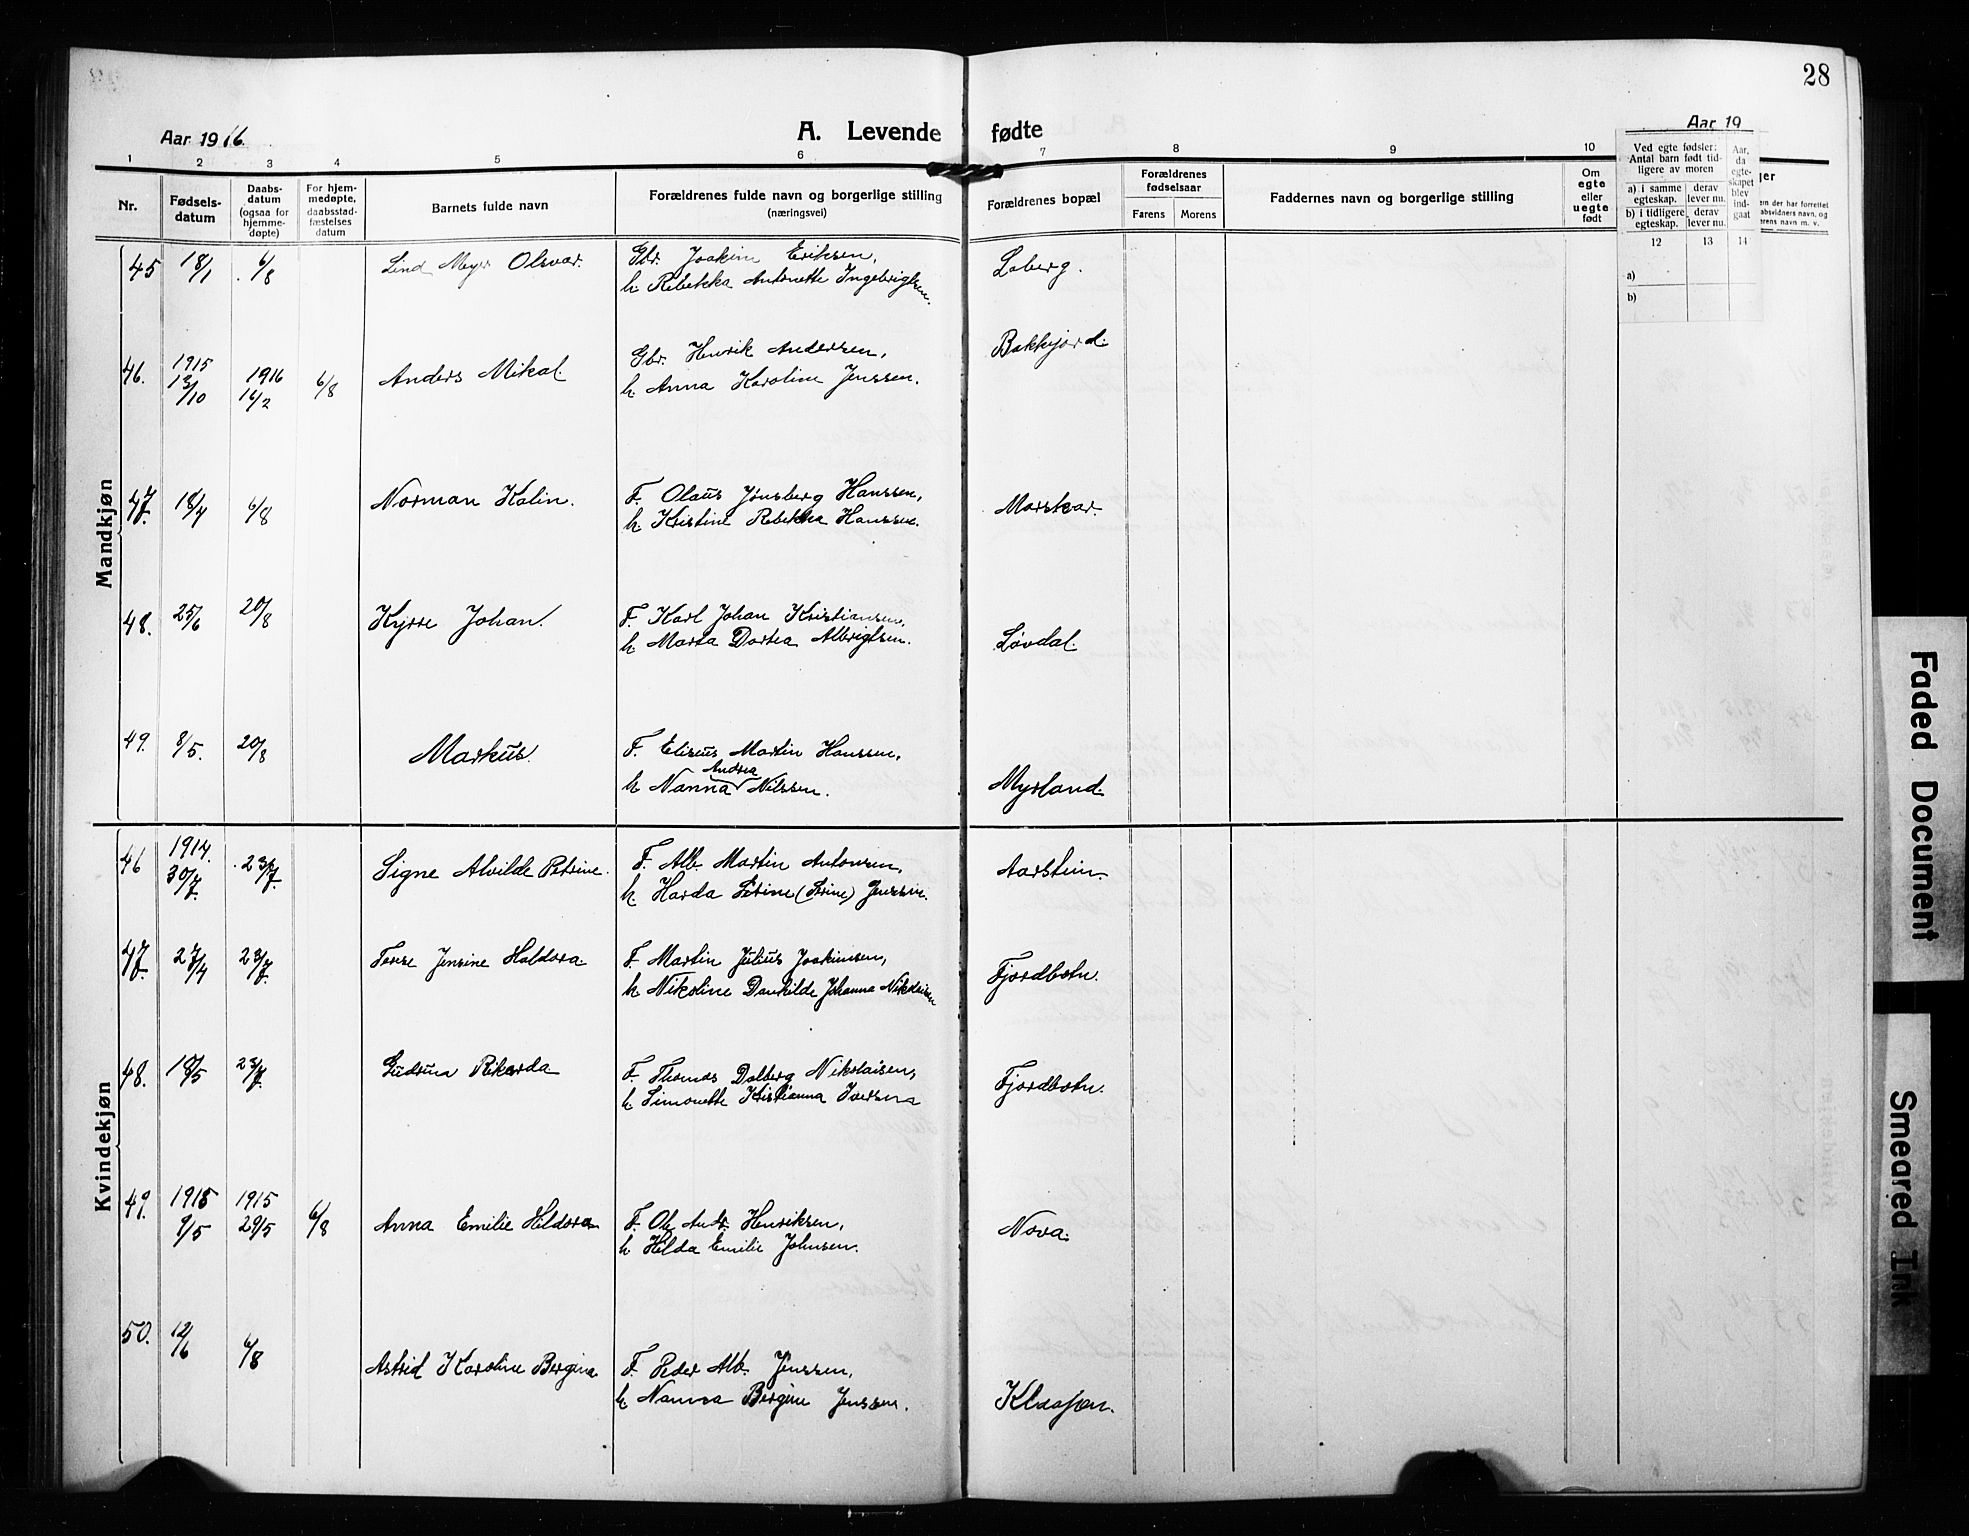 28
Aar 1916.
A. Levende fødte
Aar 19
1 2 3 4 5 6 7 8 9 10
Nr.
Fødsels-
datum
Daabs-
datum
(ogsaa for
hjemme-
døpte)
For hjem-
medøpte,
daabsstad-
fæstelses
datum
Barnets fulde navn
Forældrenes fulde navn og borgerlige stilling
(næringsvei)
Forældrenes bopæl
Forældrenes
fødselsaar
Farens Morens
Faddernes navn og borgerlige stilling
Om
egte
eller
uegte
født
Ved egte fødsler:
Antal barn født tid-
ligere av moren
a) i samme
egteskap.
derav
lever nu.
b) i tidligere
egteskap.
derav
lever nu.
Aar,
da
egte-
skapet
blev
ind-
gaat
12 13 14
a)
b)
Mandkjøn
45 18/1 6/8 Lind Meyer Olsvar. Gbr. Joakim Eriksen, Laberg.
h. Rebekka Antonette Ingebrigtsen.
46. 1915 13/10 1916 16/2 6/8 Anders Mikal. Gbr. Henrik Andersen, Bakkejord.
h. Anna Karoline Jenssen.
47. 18/4 6/8 Norman Kalin. F. Olaus Jønsberg Hanssen,
h. Kristine Rebekka Hanssen.
48. 25/6 20/8 Kyrre Johan. F. Karl Johan Kristiansen,
h. Marta Dortea Albrigtsen. Løvdal.
49. 8/5. 20/8 Markus. F. Eliseus Martin Hanssen,
h. Nanna Andrea Nilssen. Myrland.
Kvindekjøn
46 1914. 30/7. 23/7. Signe Alvilde Petrine. F. Alb. Martin Antonsen, Aarstein.
h. Harda Serine (Serine) Jenssen.
47. 27/4 23/7. Jensine Haldora F. Martin Julius Joakimsen, Fjordbotn.
h. Nikoline Dankilde Johanna Nikolaisen
48. 18/5 23/7. Gudruna Rikarda F. Thomas Dalberg Nikolaisen, Fjordbotn.
h. Simonette Kristianna Iversena
49. 1915 9/5 1915 29/5 6/8 Anna Emilie Hildora F. Ole Andr. Henriksen, Nova.
h. Hilda Emilie Johnsen.
50. 12/6 6/8 Astrid Karoline Bergina. F. Peder Alb. Jenssen,
h. Nanna Bergine Jenssen. Klaajen.
Faded Document
Smeared Ink